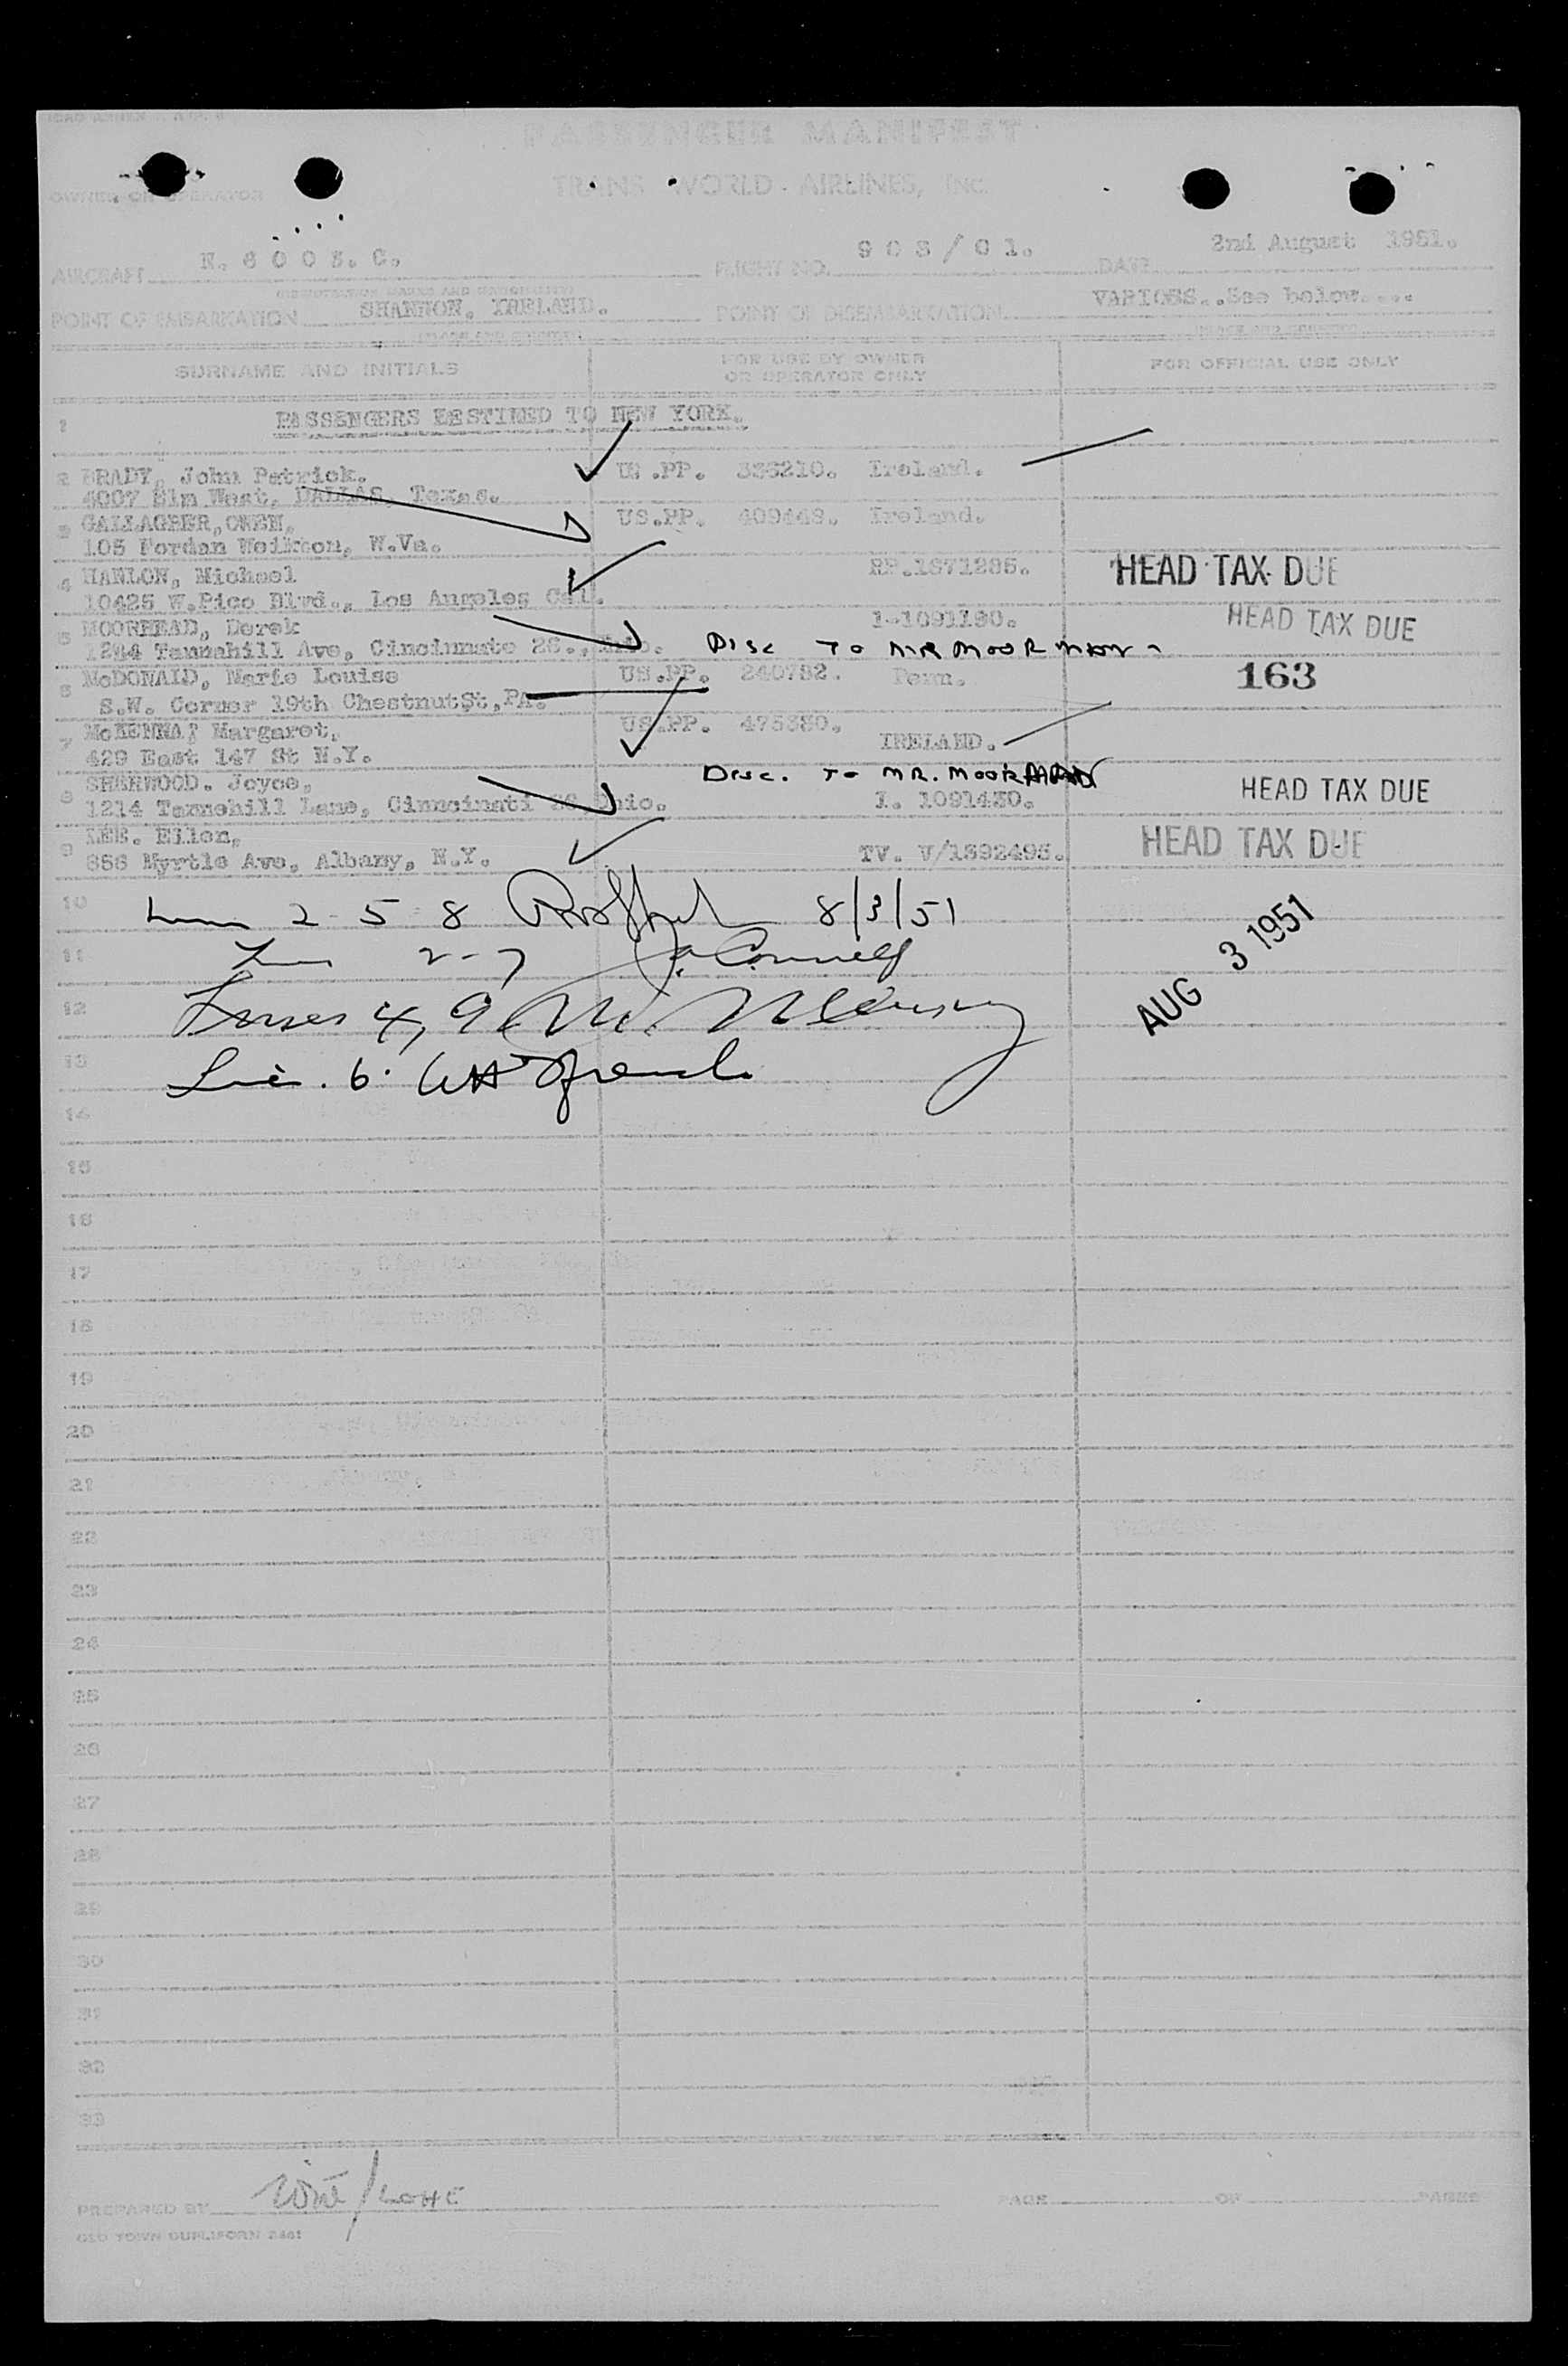 PASSENGER MANIFEST
TRANS WORLD AIRLINES, INC.
OWNER OR OPERATOR
AIRCRAFT N. 6 0 0 3. C. FLIGHT NO. 9 0 3 / 0 1. DATE 2nd August 1951.
POINT OF EMBARKATION SHANNON. IRELAND. POINT OF DISEMBARKATION VARIOUS..See below....
SURNAME AND INITIALS FOR USE BY OWNER OR OPERATOR ONLY FOR OFFICIAL USE ONLY
1 PASSENGERS DESTINED TO NEW YORK.
2 BRADY, John Patrick. US.PP. 336210. Ireland.
4007 Elm West, DALLAS, Texas.
3 GALLAGHER, OWEN, US.PP. 409448. Ireland.
105 Fordan W.Va.
4 HANLON, Michael RP.1371295. HEAD TAX DUE
10425 W.Pico Blvd., Los Angeles Cal.
5 MOORHEAD, Derek HEAD TAX DUE
Ave, Cincinnato 26., Ohio. DISC TO MR
6 McDONALD, Marie Louise US.PP. 240732. Penn. 163
S.W. Corner 19th Chestnut St, PA.
7 McKENNA, Margaret, US.PP. 475350. IRELAND.
429 East 147 St N.Y.
DISC. TO MR.
8 SHERWOOD. Joyce, I. 1091430. HEAD TAX DUE
1214 Tannehill Lane, Cinncinati 26 Ohio.
9 LEE. Ellen, TV. V/1392495. HEAD TAX DUE
856 Myrtle Ave, Albany, N.Y.
10 2-5-8 8/3/51
11 2-7
AUG 3 1951
12 Lines 4, 9
13 Line. 6.
14
15
16
17
18
19
20
21
22
23
24
25
26
27
28
29
30
31
32
33
PREPARED BY PAGE OF PAGES
OLD TOWN DUPLIFORM